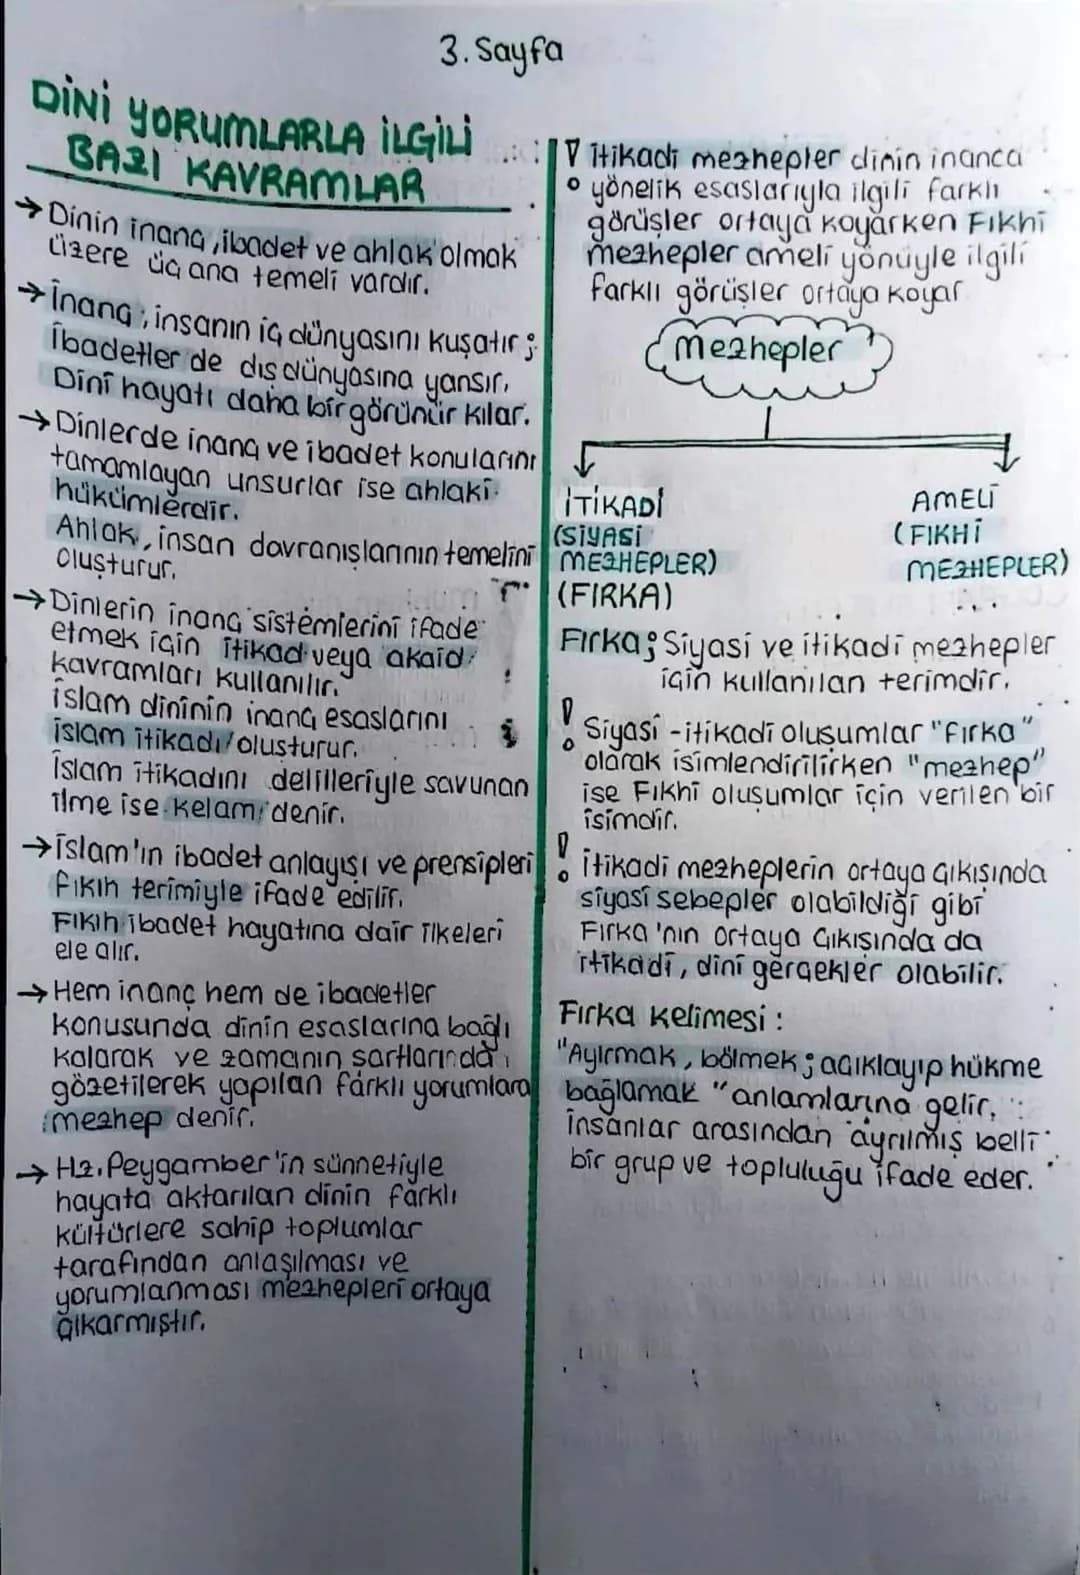 3. Sayfa
DİNİ YORUMLARLA İLGİLİ
BAZI KAVRAMLAR
→ Dinin inanç, ibadet ve ahlak olmak
üzere üç ana temeli vardır.
→ İnanç; insanın iç dünyasını kuşatır;
İbadetler de dış dünyasına yansır,
Dinî hayatı daha bir görünür kılar.
→ Dinlerde inanç ve ibadet konularını
tamamlayan unsurlar ise ahlakî
hükümlerdir.
Ahlak, insan davranışlarının temelini
oluşturur.
→ Dinlerin inanç sistemlerini ifade
etmek için îtikad veya akaid
kavramları kullanılır.
İslam dininin inanç esaslarını
islam îtikadı oluşturur.
İslam îtikadını delilleriyle savunan
ilme ise kelam denir.
→ İslam'ın ibadet anlayışı ve prensipleri
fıkıh terimiyle ifade edilir.
Fıkıh ibadet hayatına dair ilkeleri
ele alır.
→ Hem inanç hem de ibadetler
konusunda dinin esaslarına bağlı
kalarak ve zamanın şartlarında
gözetilerek yapılan farklı yorumlara
mezhep denir.
→ Hz. Peygamber'in sünnetiyle
hayata aktarılan dinin farklı
kültürlere sahip toplumlar
tarafından anlaşılması ve
yorumlanması mezhepleri ortaya
çıkarmıştır.
! îtikadi mezhepler dinin inanca
yönelik esaslarıyla ilgili farklı
görüşler ortaya koyarken Fıkhî
mezhepler amelî yönüyle ilgili
farklı görüşler ortaya koyar
Mezhepler
İTİKADİ
(SİYASİ
MEZHEPLER)
(FIRKA)
AMELİ
(FIKHİ
MEZHEPLER)
Fırka; Siyasi ve itikadî mezhepler
için kullanılan terimdir.
! Siyasî -itikadî oluşumlar "fırka"
olarak isimlendirilirken "mezhep"
ise Fıkhî oluşumlar için verilen bir
isimdir.
! İtikadi mezheplerin ortaya çıkışında
siyasî sebepler olabildiği gibi
Fırka'nın ortaya çıkışında da
itikadî, dinî gerçekler olabilir.
Fırka kelimesi:
"Ayırmak, bölmek; açıklayıp hükme
bağlamak" anlamlarına gelir,
İnsanlar arasından ayrılmış belli
bir grup ve topluluğu ifade eder.